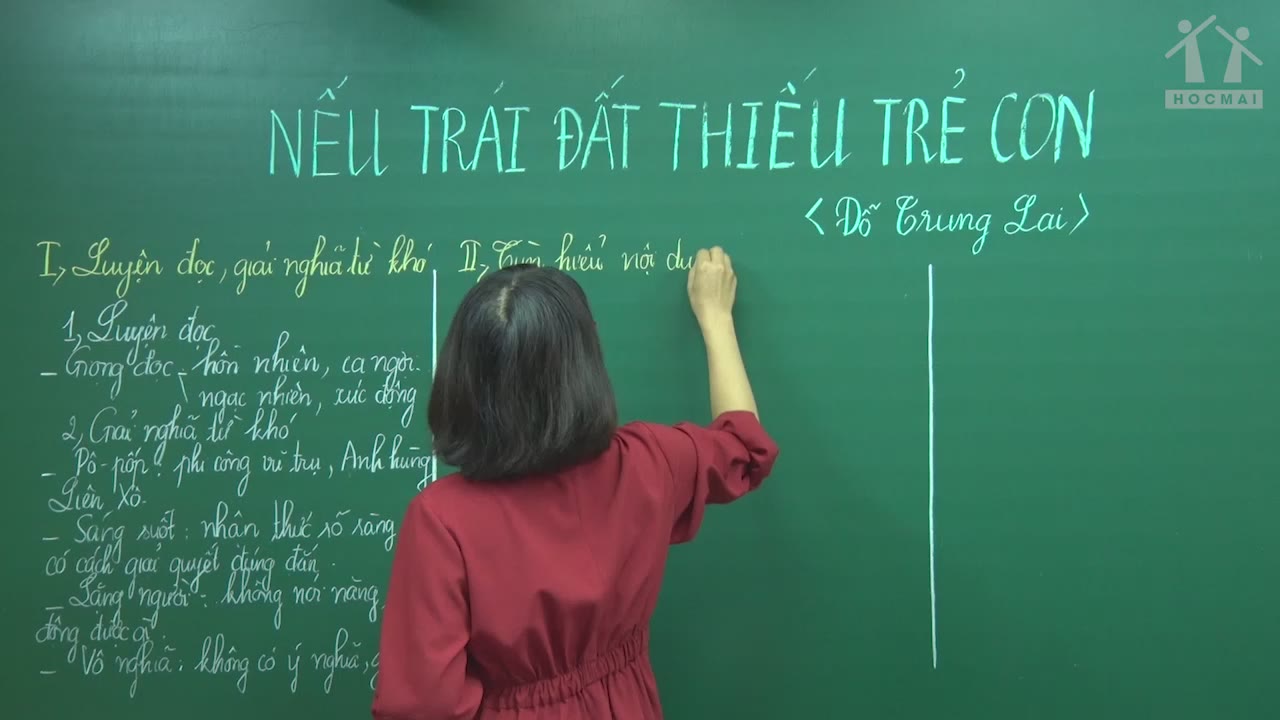 HOCMAI
NẾU TRÁI ĐẤT THIẾU TRẺ CON
<Đỗ Trung Lai>
I, Luyện đọc, giải nghĩa từ khó
1, Luyện đọc
- Giọng đọc - hồn nhiên, ca ngợi.
ngạc nhiên, xúc động
2, Giải nghĩa từ khó
- Pô-pốp: phi công vũ trụ, Anh hùng
Liên Xô.
- Sáng suốt: nhận thức rõ ràng
có cách giải quyết đúng đắn.
- Lặng người: không nói năng,
động được gì.
- Vô nghĩa: không có ý nghĩa,
II, Tìm hiểu nội du